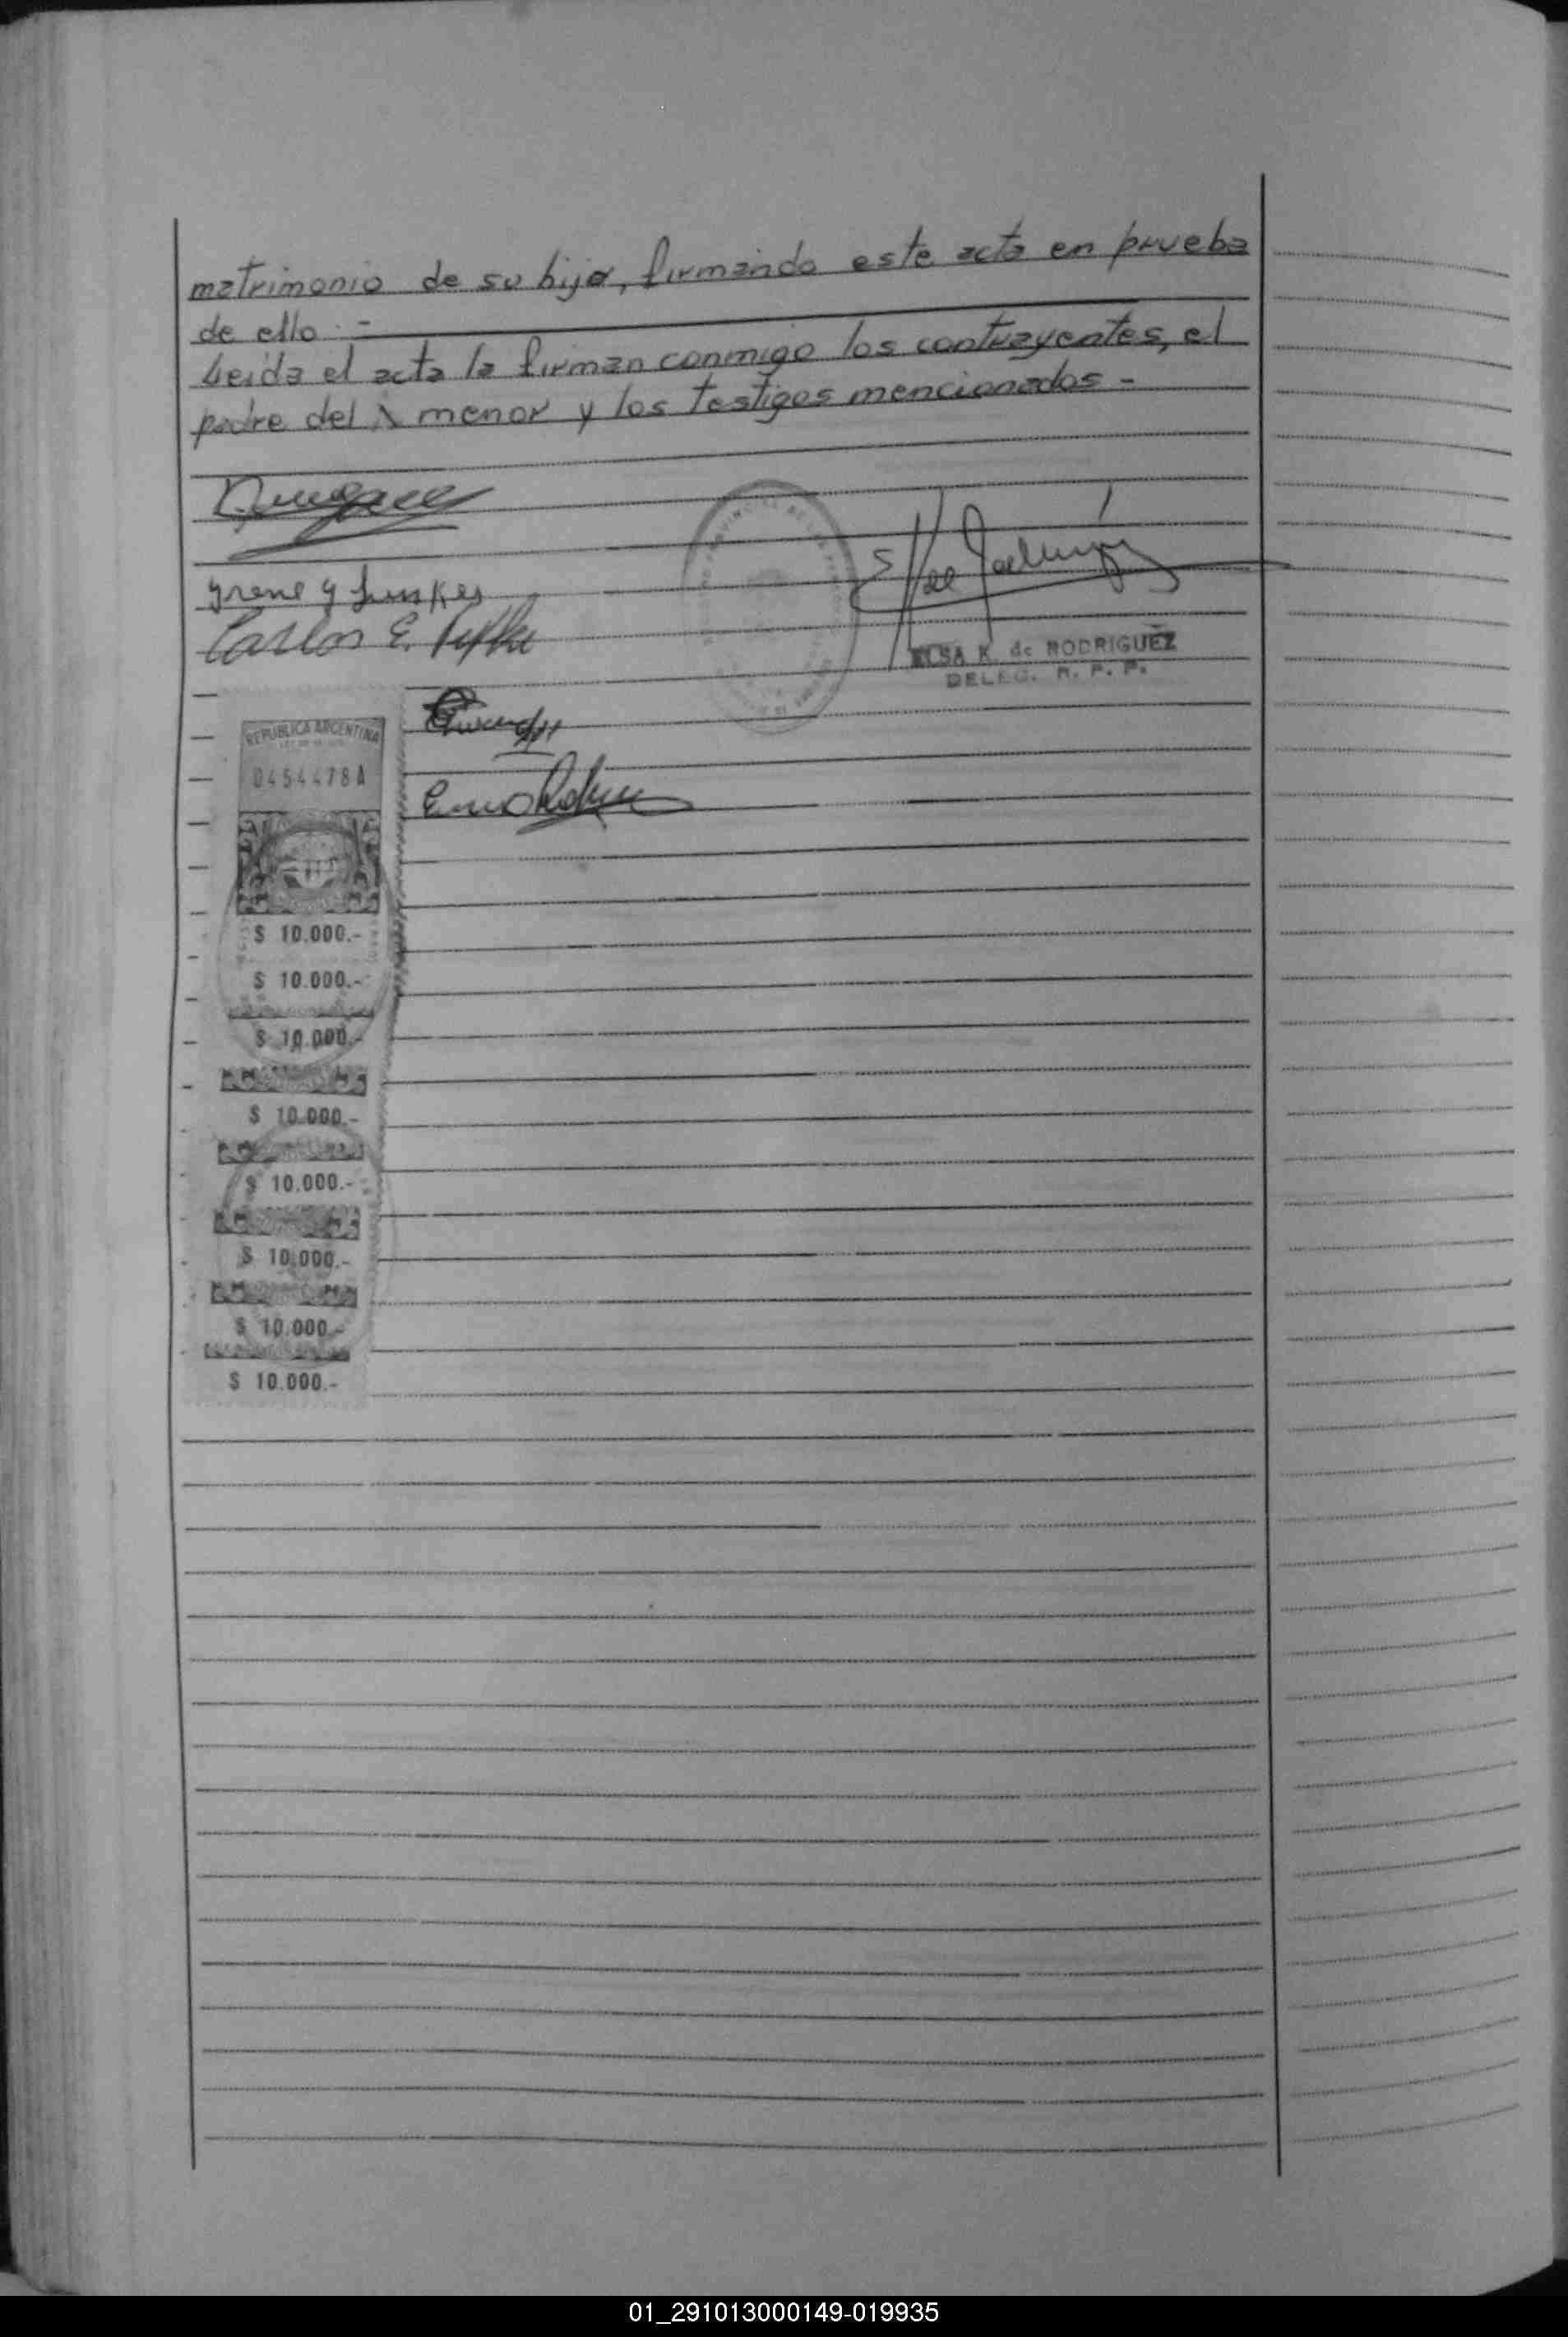 matrimonio de su hijo, firmando este acta en prueba
de ello.-
Leida el acta la firman conmigo los contrayentes, el
padre del menor y los testigos mencionados-
Irene G
Carlos E.
ELSA K. de RODRIGUEZ
DELEG. R. P. P.
REPUBLICA ARGENTINA
0454478A
$ 10.000.-
$ 10.000.-
$ 10.000.-
$ 10.000.-
$ 10.000.-
$ 10.000.-
$ 10.000.-
$ 10.000.-
01_291013000149-019935